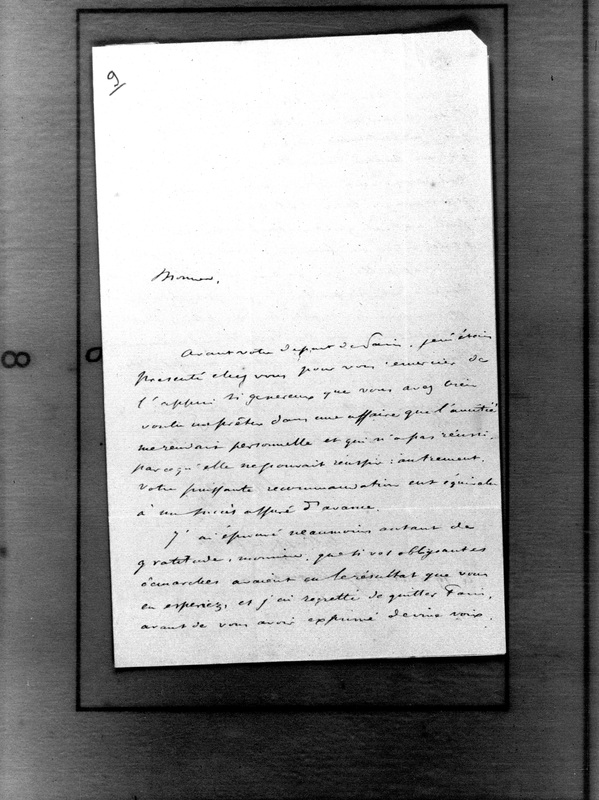 9
8
Monsieur,
Avant votre départ de Paris, je m'étais
présenté chez vous pour vous remercier de
l'appui si généreux que vous avez bien
voulu me prêter dans une affaire que l'amitié
me rendait personnelle et qui n'a pas réussi,
parcequ'elle ne pouvait réussir : autrement,
votre puissante recommandation eut équivalu
à un succès assuré d'avance.
J'ai éprouvé néanmoins autant de
gratitude, monsieur, que si vos obligeantes
démarches avaient eu le résultat que vous
en espériez, et j'ai regretté de quitter Paris,
avant de vous avoir exprimé de vive voix